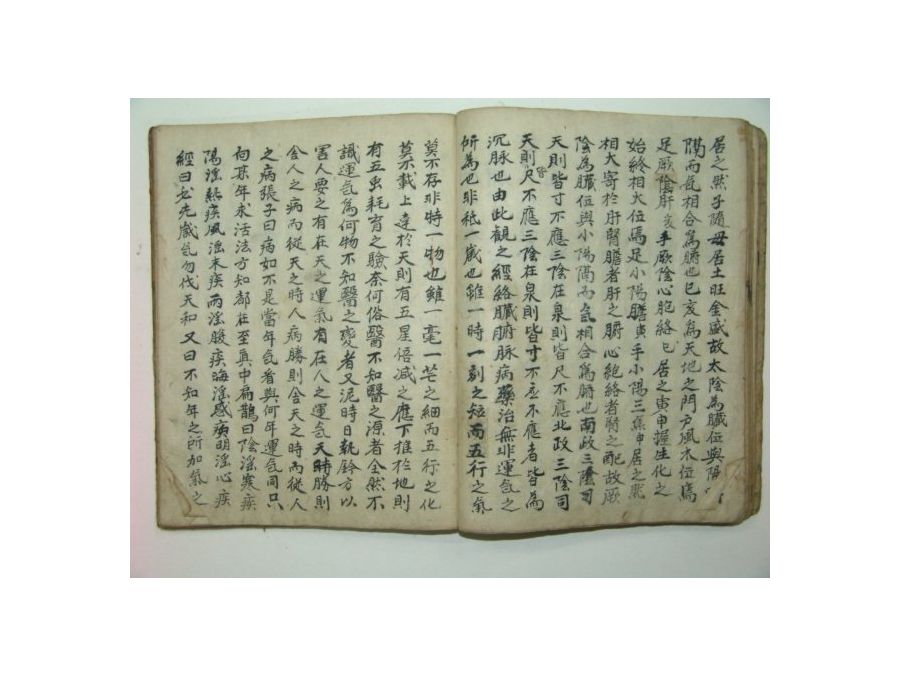 居之然子隨母居土旺金盛故太陰為臟位與陽
明而氣相合為腑也巳亥為天地之門戶風木位為
足厥陰肝亥手厥陰心胞絡巳居之寅申握生化之
始終相火位焉足小陽膽寅手小陽三焦申居之然
相火寄於肝腎膽者肝之腑心胞絡者腎之配故厥
陰為臟位與小陽隔而氣相合為腑也南政三陰司
天則皆寸不應三陰在泉則皆尺不應北政三陰司
天則皆尺不應三陰在泉則皆寸不應不應者皆為
沉脉也由此觀之經絡臟腑脉病藥治無非運氣之
所為也非祗一歲也雖一時一刻之短而五行之氣
莫不存非特一物也雖一毫一芒之細而五行之化
莫不載上達於天則有五星倍减之應下推於地則
有五虫耗育之驗奈何俗醫不知醫之源者全然不
識運氣為何物不知醫之變者又泥時日執鈐方以
害人要之有在天之運氣有在人之運氣天時勝則
舍人之病而從天之時人病勝則舍天之時而從人
之病張子曰病如不是當年氣看與何年運氣同只
向某年求活法方知都在至真中扁鵲曰陰淫寒疾
陽淫熱疾風淫末疾雨淫腹疾晦淫惑疾明淫心疾
經曰必先歲氣勿伐天和又曰不知年之所加氣之